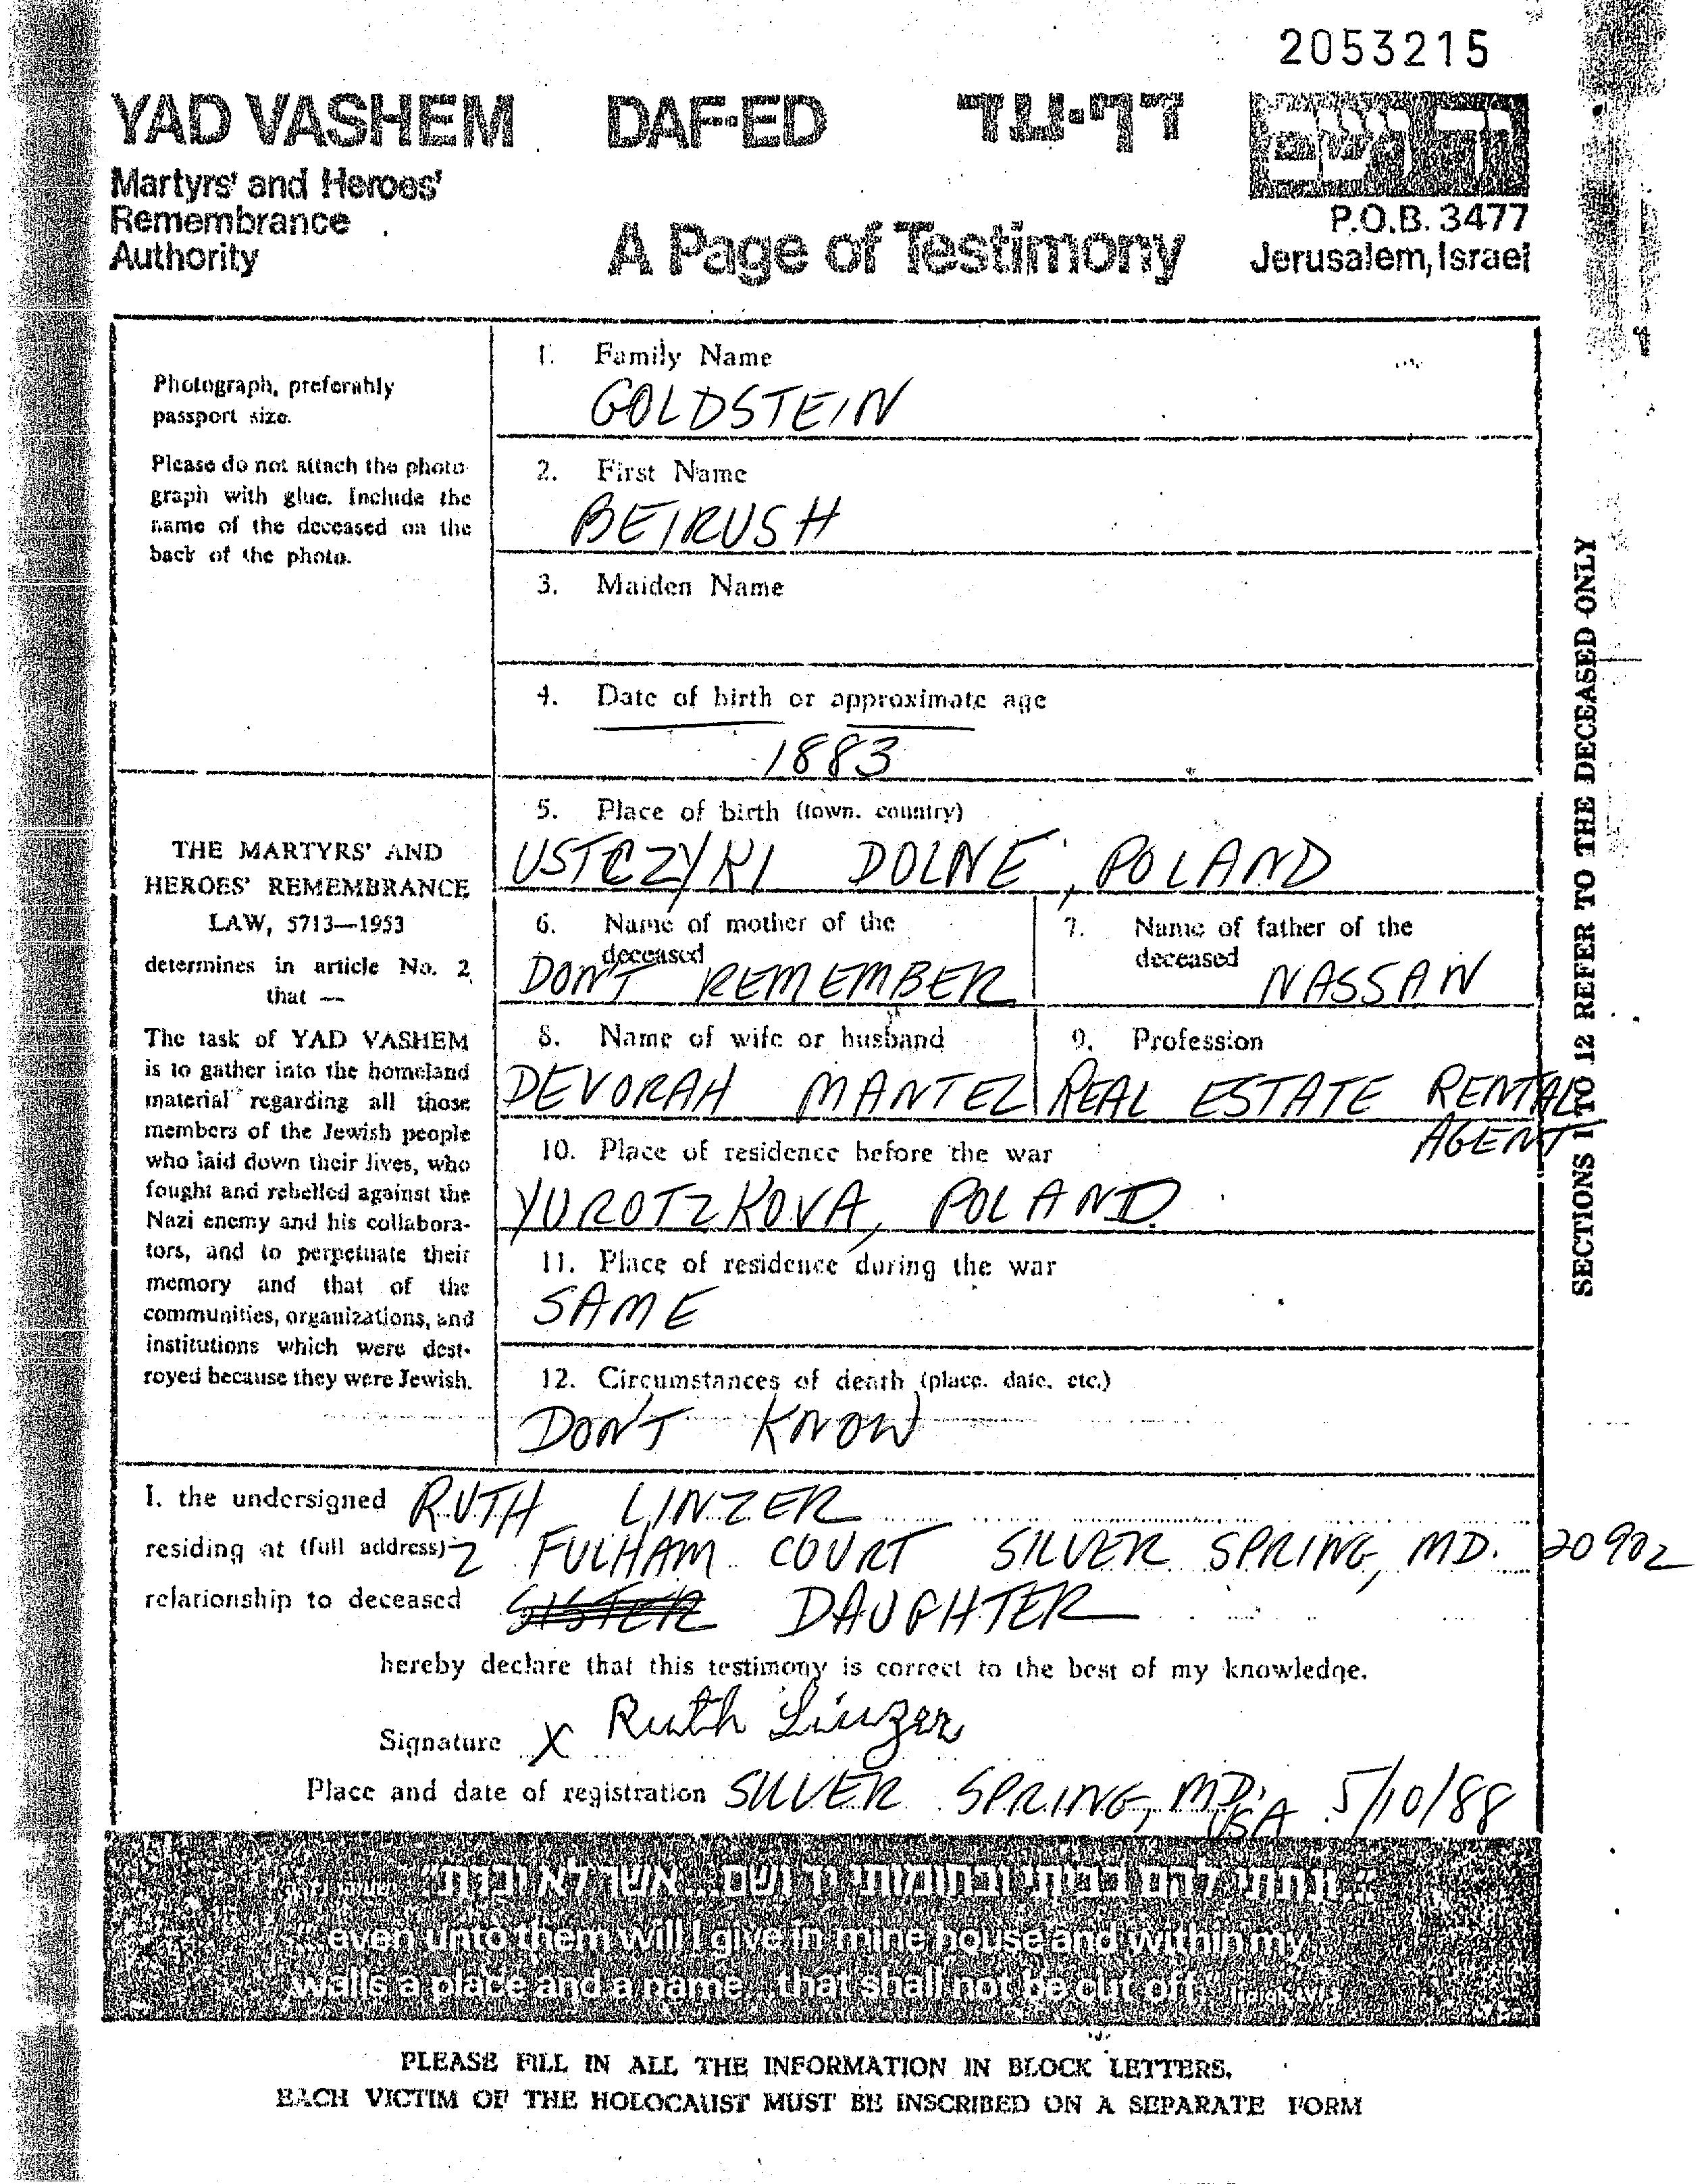 2053215
YAD VASHEM DAF-ED דף-עד
יד ושם
Martyrs' and Heroes'
Remembrance
Authority
A Page of Testimony
P.O.B. 3477
Jerusalem, Israel
Photograph, preferably
passport size.
Please do not attach the photo-
graph with glue. Include the
name of the deceased on the
back of the photo.
1. Family Name
GOLDSTEIN
2. First Name
BEIRUSH
3. Maiden Name
4. Date of birth or approximate age
1883
THE MARTYRS' AND
HEROES' REMEMBRANCE
LAW, 5713—1953
determines in article No. 2
that —
The task of YAD VASHEM
is to gather into the homeland
material regarding all those
members of the Jewish people
who laid down their lives, who
fought and rebelled against the
Nazi enemy and his collabora-
tors, and to perpetuate their
memory and that of the
communities, organizations, and
institutions which were dest-
royed because they were Jewish.
5. Place of birth (town, country)
USTCZYKI DOLNE, POLAND
6. Name of mother of the
deceased
DON'T REMEMBER
7. Name of father of the
deceased
NASSAN
8. Name of wife or husband
DEVORAH MANTEL
9. Profession
REAL ESTATE RENTAL
AGENT
10. Place of residence before the war
YUROTZKOVA, POLAND
11. Place of residence during the war
SAME
12. Circumstances of death (place, date, etc.)
DON'T KNOW
SECTIONS 1 TO 12 REFER TO THE DECEASED ONLY
I, the undersigned RUTH LINZER
residing at (full address) 2 FULHAM COURT SILVER SPRING, MD. 20902
relationship to deceased SISTER DAUGHTER
hereby declare that this testimony is correct to the best of my knowledge.
Signature X Ruth Linzer
Place and date of registration SILVER SPRING, MD. USA 5/10/88
"...ונתתי להם בביתי ובחומותי יד ושם... אשר לא יכרת"
"...even unto them will I give in mine house and within my
walls a place and a name... that shall not be cut off."
PLEASE FILL IN ALL THE INFORMATION IN BLOCK LETTERS.
EACH VICTIM OF THE HOLOCAUST MUST BE INSCRIBED ON A SEPARATE FORM